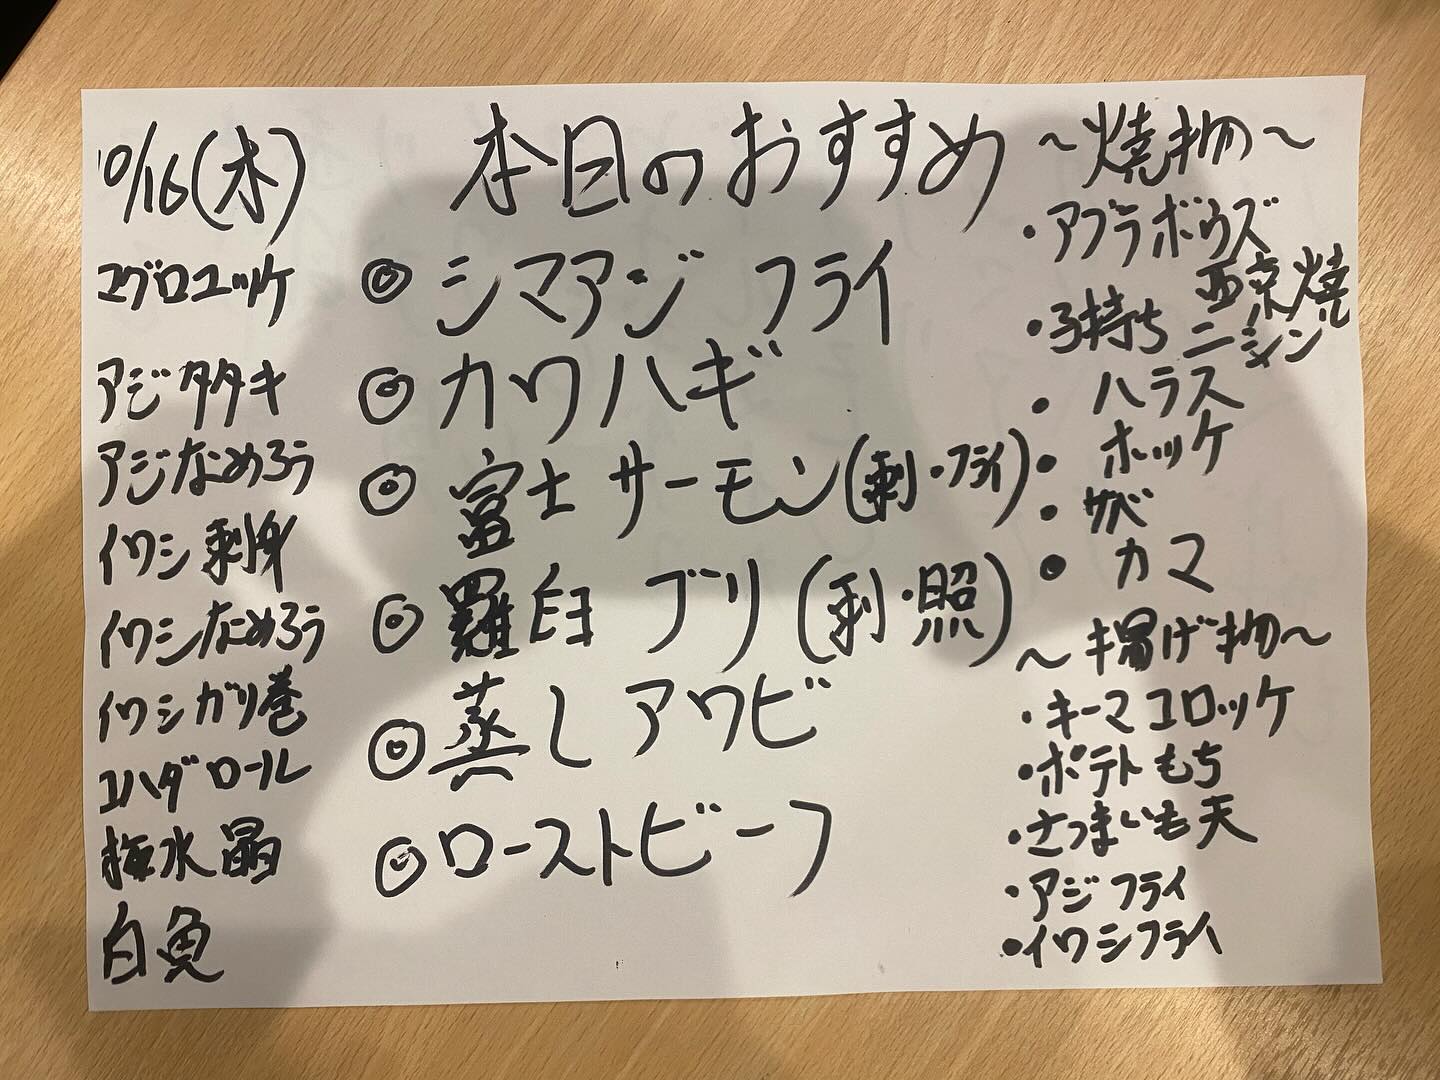 10/16(木)
マグロユッケ
アジタタキ
アジなめろう
イワシ刺身
イワシなめろう
イワシガリ巻
コハダロール
梅水晶
白魚
本日のおすすめ
◎シマアジ フライ
◎カワハギ
◎富士サーモン(刺・フライ)
◎羅臼 ブリ(刺・照)
◎蒸しアワビ
◎ローストビーフ
～焼物～
・アブラボウズ
西京焼
・子持ちニシン
・ハラス
・ホッケ
・サバ
・カマ
～揚げ物～
・キーマコロッケ
・ポテトもち
・さつまいも天
・アジフライ
・イワシフライ